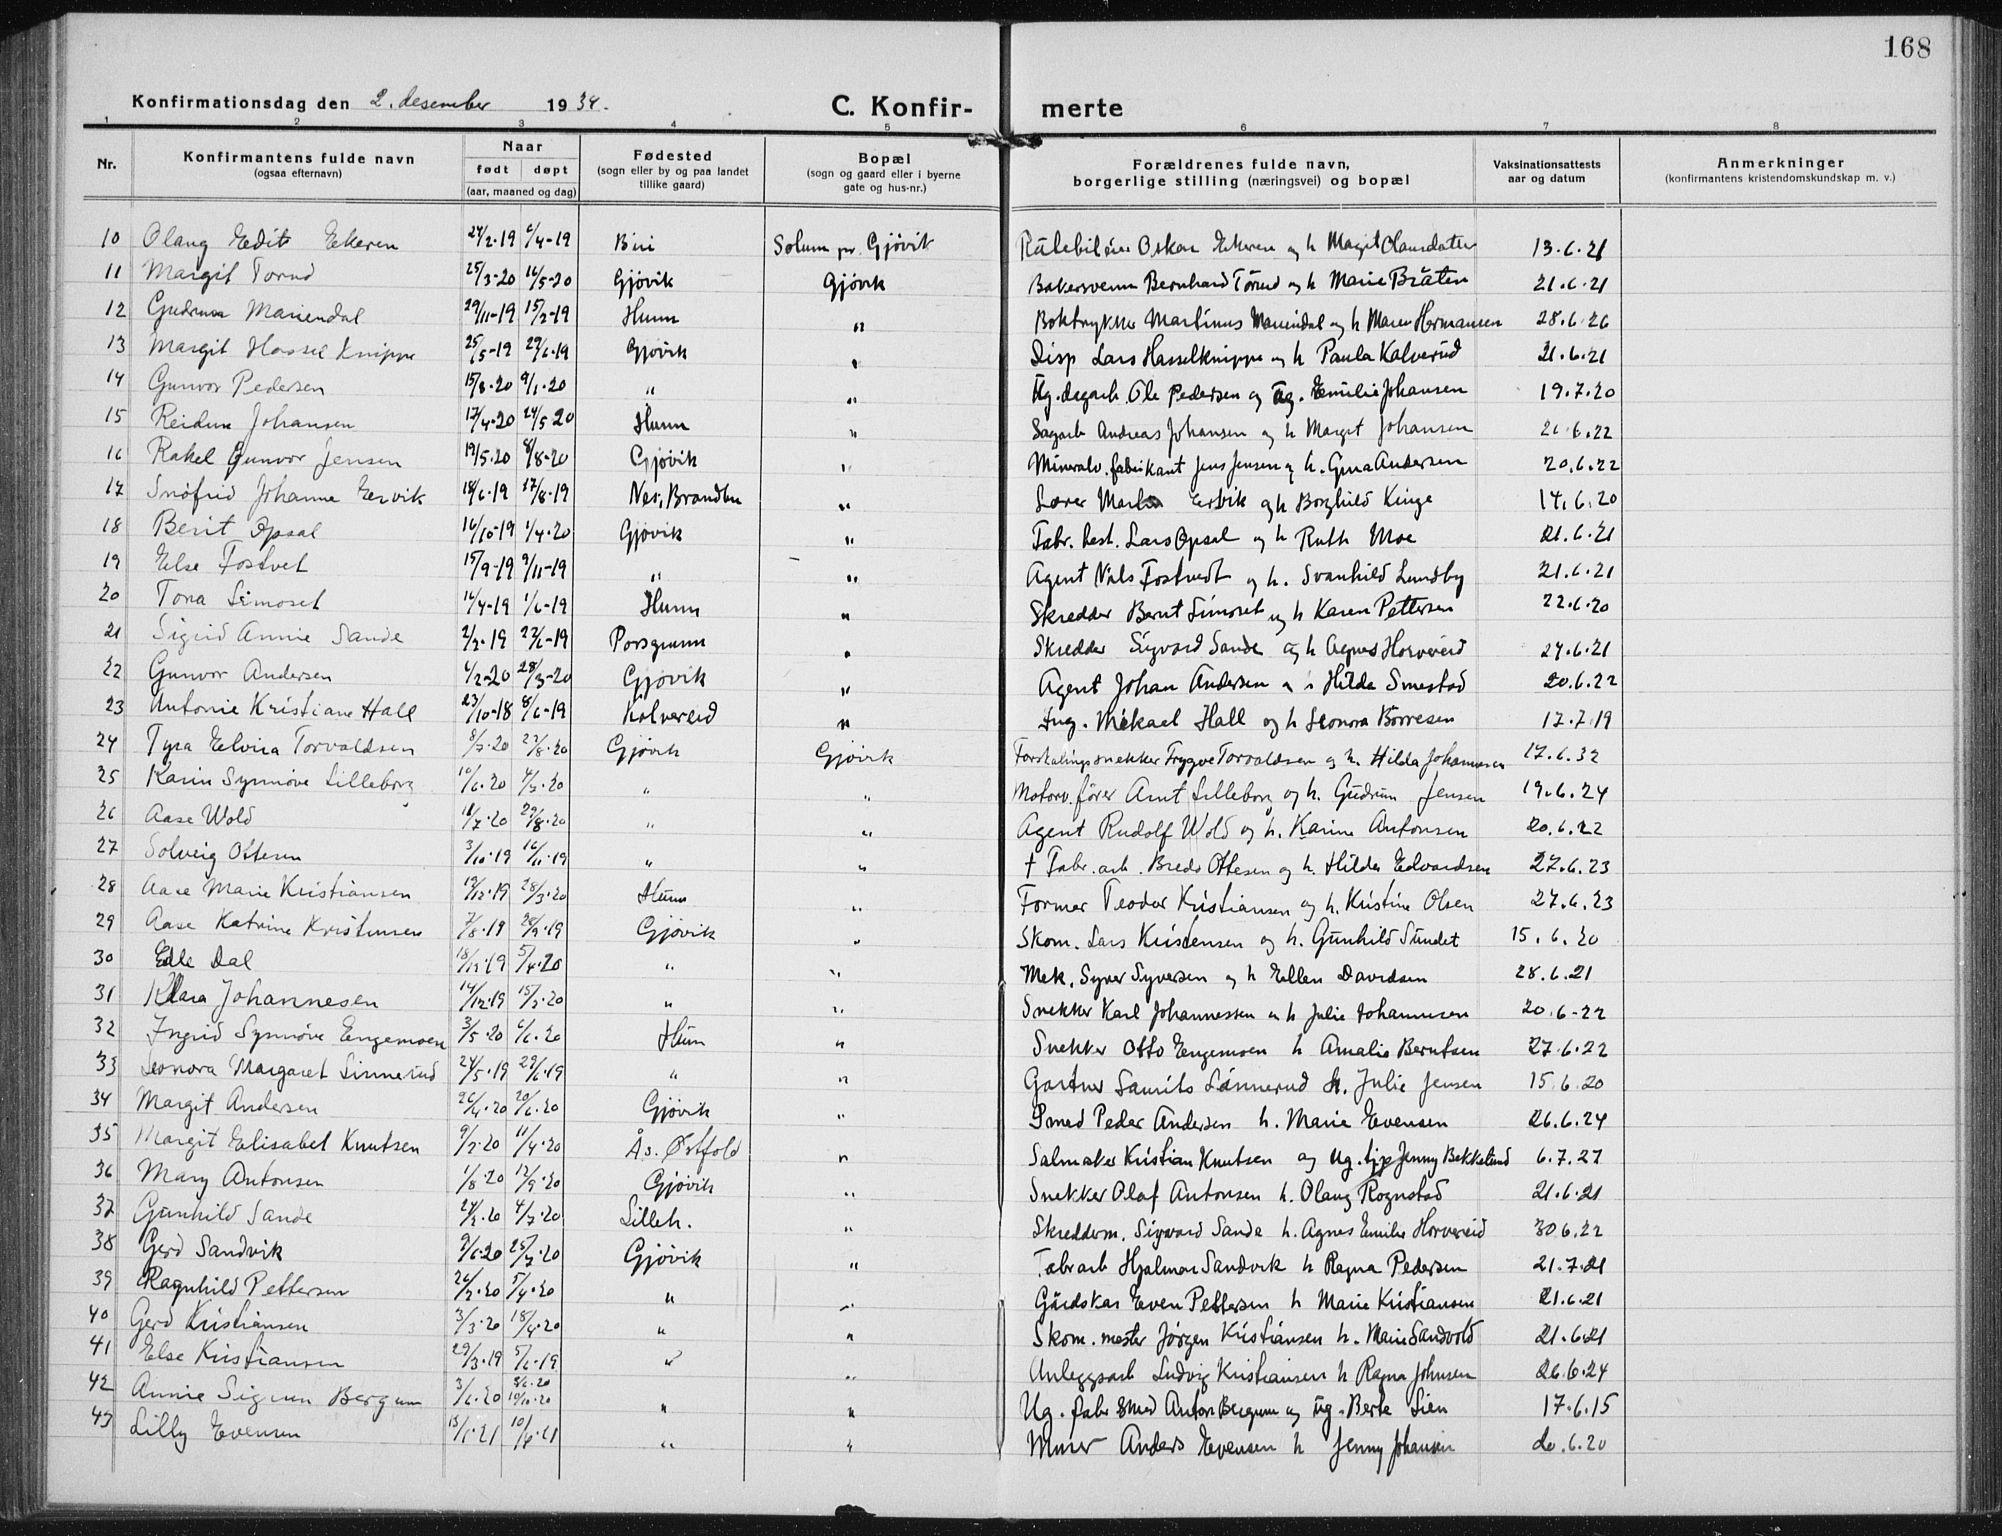 168
Konfirmationsdag den 2. desember 1934.
C. Konfir- merte
1 2 3 4 5 6 7 8
Nr. Konfirmantens fulde navn (ogsaa efternavn) Naar født døpt (aar, maaned og dag) Fødested (sogn eller by og paa landet tillike gaard) Bopæl (sogn og gaard eller i byerne gate og hus-nr.) Forældrenes fulde navn, borgerlige stilling (næringsvei) og bopæl Vaksinationsattests aar og datum Anmerkninger (konfirmantens kristendomskundskap m. v.)
10 Olaug Edit Ekeren 24/2-19 6/4-19 Biri Solum pr. Gjövik Rutebileier Oskar Ekeren og h Margit Olausdatter 13.6.21
11 Margit Torud 25/3-20 16/5-20 Gjövik Gjövik Bakersvenn Bernhard Torud og h Marie Bråten 21.6.21
12 Gudrun Mariendal 29/11-19 15/2-19 Hunn " Boktrykker Martinus Mariendal og h Maren Hermansen 28.6.26
13 Margit Hassel Knippe 25/5-19 29/6-19 Gjövik " Disp Lars Hasselknippe og h Paula Kalverud 21.6.21
14 Gunvor Pedersen 15/8-20 9/1-20 " " Ug. dagarb. Ole Pedersen og ug. Emilie Johansen 19.7.20
15 Reidun Johansen 17/4-20 24/5-20 Hunn " Sagarb Andreas Johansen og h Margit Johansen 21.6.22
16 Rakel Gunvor Jensen 19/5-20 8/8-20 Gjövik " Mineralv. fabrikant Jens Jensen og h. Gina Andersen 20.6.22
17 Snöfrid Johanne Ervik 18/6-19 17/8-19 Nes, Brandbu " Lærer Martin Ervik og h Borghild Kinge 14.6.20
18 Berit Opsal 16/10-19 1/4-20 Gjövik " Fabr. best. Lars Opsal og h Ruth Moe 21.6.21
19 Else Fostvet 15/9-19 9/11-19 " " Agent Nils Fostvedt og h. Svanhild Lundby 21.6.21
20 Tora Limoset 16/4-19 1/6-19 Hunn " Skredder Bernt Limoset og h Karen Pettersen 22.6.20
21 Sigrid Annie Sande 2/2-19 22/6-19 Porsgrunn " Skredder Sigvard Sande og h Agnes Horvereid 24.6.21
22 Gunvor Andersen 6/2-20 28/3-20 Gjövik " Agent Johan Andersen og h Hilda Smestad 20.6.22
23 Antonie Kristiane Hall 23/10-18 8/6-19 Kolvereid " Ing. Mikael Hall og h Leonora Börresen 17.7.19
24 Tyra Elvira Torvaldsen 8/7-20 22/8-20 Gjövik Gjövik Forskalingssnekker Trygve Torvaldsen og h. Hilda Johannesen 17.6.32
25 Karin Synnöve Lilleborg 10/6-20 4/7-20 " " Motorv. förer Arnt Lilleborg og h. Gudrun Jensen 19.6.24
26 Aase Wold 16/7-20 29/8-20 " " Agent Rudolf Wold og h. Karine Antonsen 20.6.22
27 Solveig Ottesen 3/10-19 16/11-19 " " † Fabr. arb. Brede Ottesen og h. Hilda Edvardsen 27.6.23
28 Aase Marie Kristiansen 19/12-19 28/3-20 Hunn " Former Teodor Kristiansen og h. Kristine Olsen 27.6.23
29 Aase Katrine Kristensen 7/8-19 28/9-19 Gjövik " Skom. Lars Kristensen og h. Gunhild Sundet 15.6.20
30 Edle Dal 18/12-19 5/4-20 " " Mek. Syver Syversen og h Ellen Davidsen 28.6.21
31 Klara Johannesen 14/12-19 15/2-20 " " Snekker Karl Johannessen og h Julie Johannesen 20.6-22
32 Ingrid Synnöve Engemoen 3/5-20 6/6-20 Hunn " Snekker Otto Engemoen h Amalie Berntsen 27.6.22
33 Leonora Margaret Linnerud 24/5-19 29/6-19 " " Gartner Laurits Linnerud h. Julie Jensen 15.6.20
34 Margit Andersen 26/4-20 20/6-20 Gjövik " Smed Peder Andersen h. Marie Evensen 26.6.24
35 Margit Elisabet Knutsen 9/2-20 11/4-20 Ås. Östfold " Salmaker Kristian Knutsen og ug. tjp Jenny Bekkelund 6.7.27
36 Mary Antonsen 1/8-20 12/9-20 Gjövik " Snekker Olaf Antonsen h. Olaug Rognstad 21.6.21
37 Gunhild Sande 24/2-20 4/7-20 Lilleh. " Skredderm. Sigvard Sande h. Agnes Emilie Horvereid 30.6.22
38 Gerd Sandvik 9/6-20 25/7-20 Gjövik " Fabr arb Hjalmar Sandvik h Ragna Pedersen 21.7.21
39 Ragnhild Pettersen 26/2-20 5/4-20 " " Gårdskar Even Pettersen h Marie Kristiansen 21.6.21
40 Gerd Kristiansen 3/3-20 18/4-20 " " Skom. mester Jörgen Kristiansen h. Marie Sandvold 21.6.21
41 Else Kristiansen 29/3-19 5/6-19 " " Anleggsarb Ludvig Kristiansen h Ragna Johnsen 26.6.24
42 Annie Sigrun Bergum 3/6-20 8/6-20 10/10-20 " " Ug. fabr smed Anton Bergum og ug. Berte Lien 17.6.15
43 Lilly Evensen 13/1-21 10/4-21 " " Murer Anders Evensen h Jenny Johansen 20.6.20